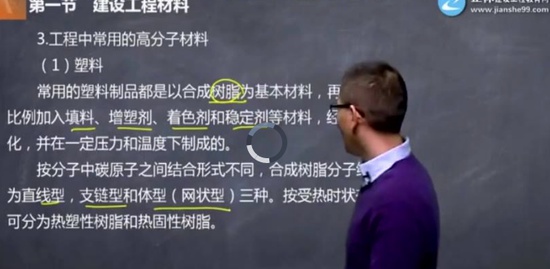 第一节 建设工程材料
www.jianshe99.com
3.工程中常用的高分子材料
（1）塑料
常用的塑料制品都是以合成树脂为基本材料，再
比例加入填料、增塑剂、着色剂和稳定剂等材料，经
化，并在一定压力和温度下制成的。
按分子中碳原子之间结合形式不同，合成树脂分子
为直线型，支链型和体型（网状型）三种。按受热时状
可分为热塑性树脂和热固性树脂。